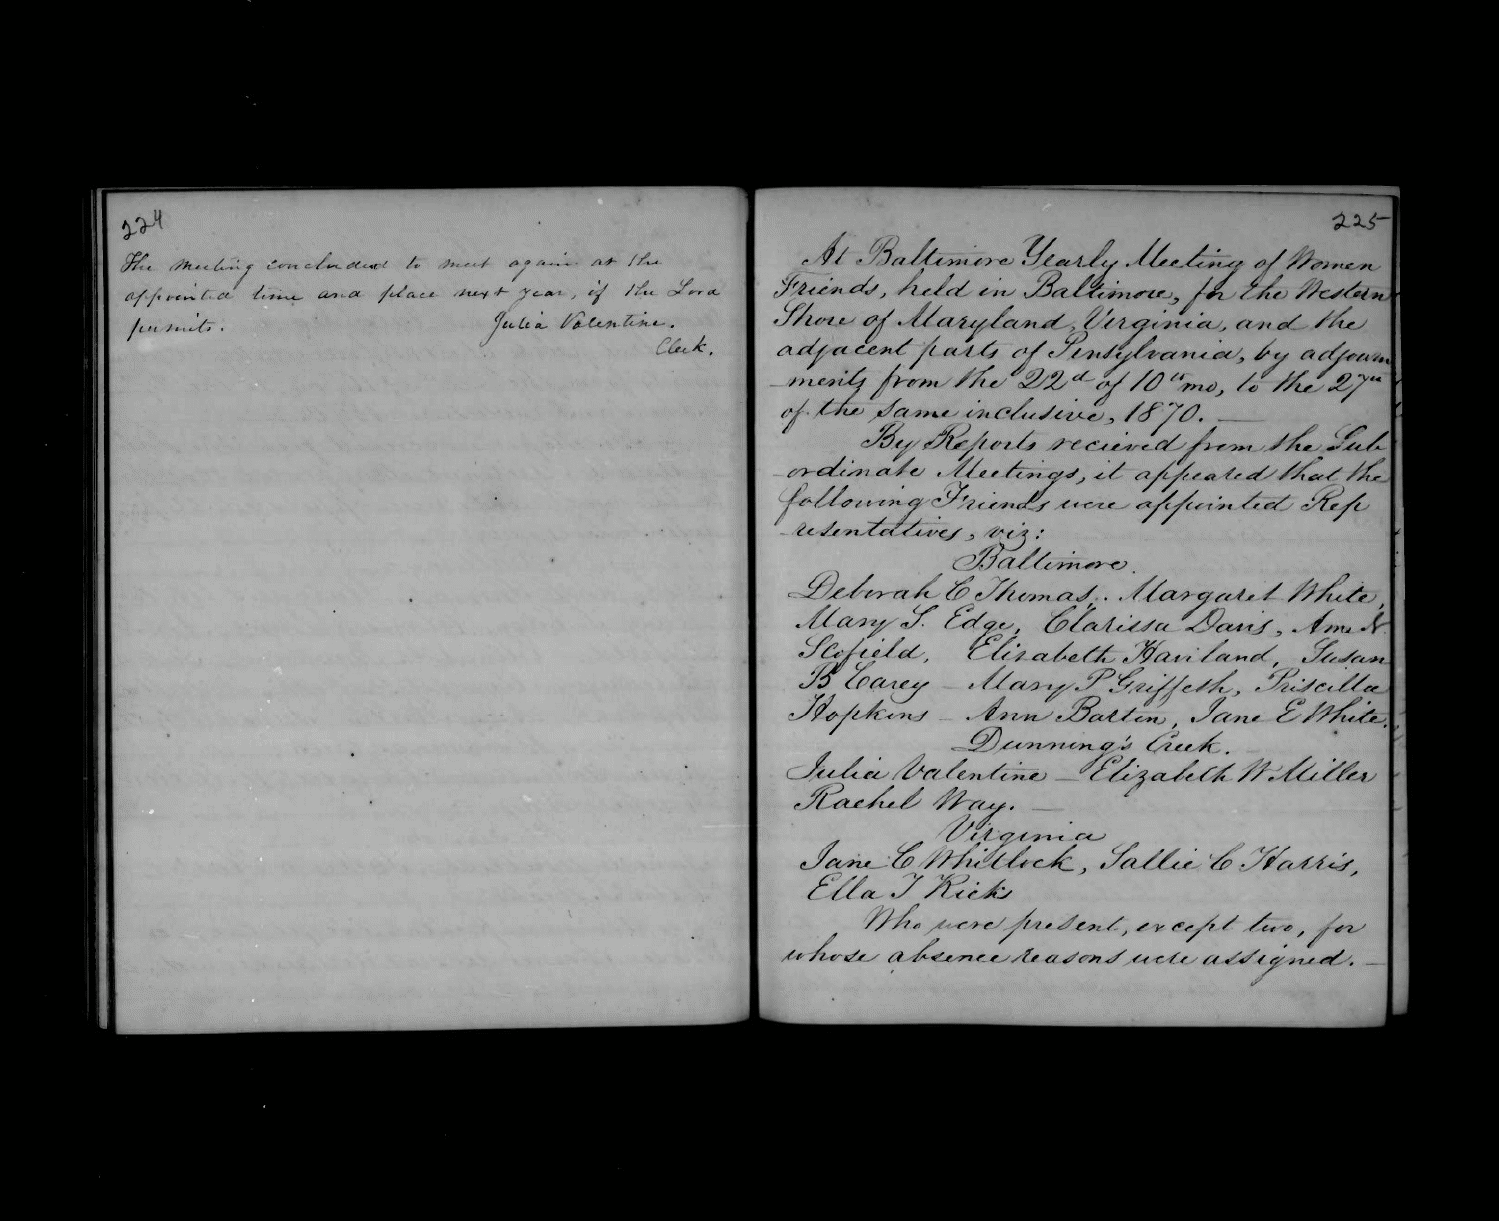 224
The meeting concluded to meet again at the
appointed time and place next year, if the Lord
permits. Julia Valentine.
Clerk.
225
At Baltimore Yearly Meeting of Women
Friends, held in Baltimore, for the Western
Shore of Maryland, Virginia, and the
adjacent parts of Pensylvania, by adjourn
ments from the 22d of 10th mo, to the 27th
of the same inclusive, 1870.
By Reports recieved from the Sub
ordinate Meetings, it appeared that the
following Friends were appointed Rep
resentatives, viz:
Baltimore.
Deborah C Thomas, Margaret White,
Mary S. Edge, Clarissa Davis, Ann N.
Scofield, Elisabeth Haviland, Susan
B Carey - Mary P Griffeth, Priscilla
Hopkins - Ann Barten, Jane E White.
Dunning's Creek.
Julia Valentine - Elizabeth W Miller
Rachel Way.
Virginia
Jane C Whitlock, Sallie C Harris,
Ella T Ricks
Who were present, except two, for
whose absence reasons were assigned.